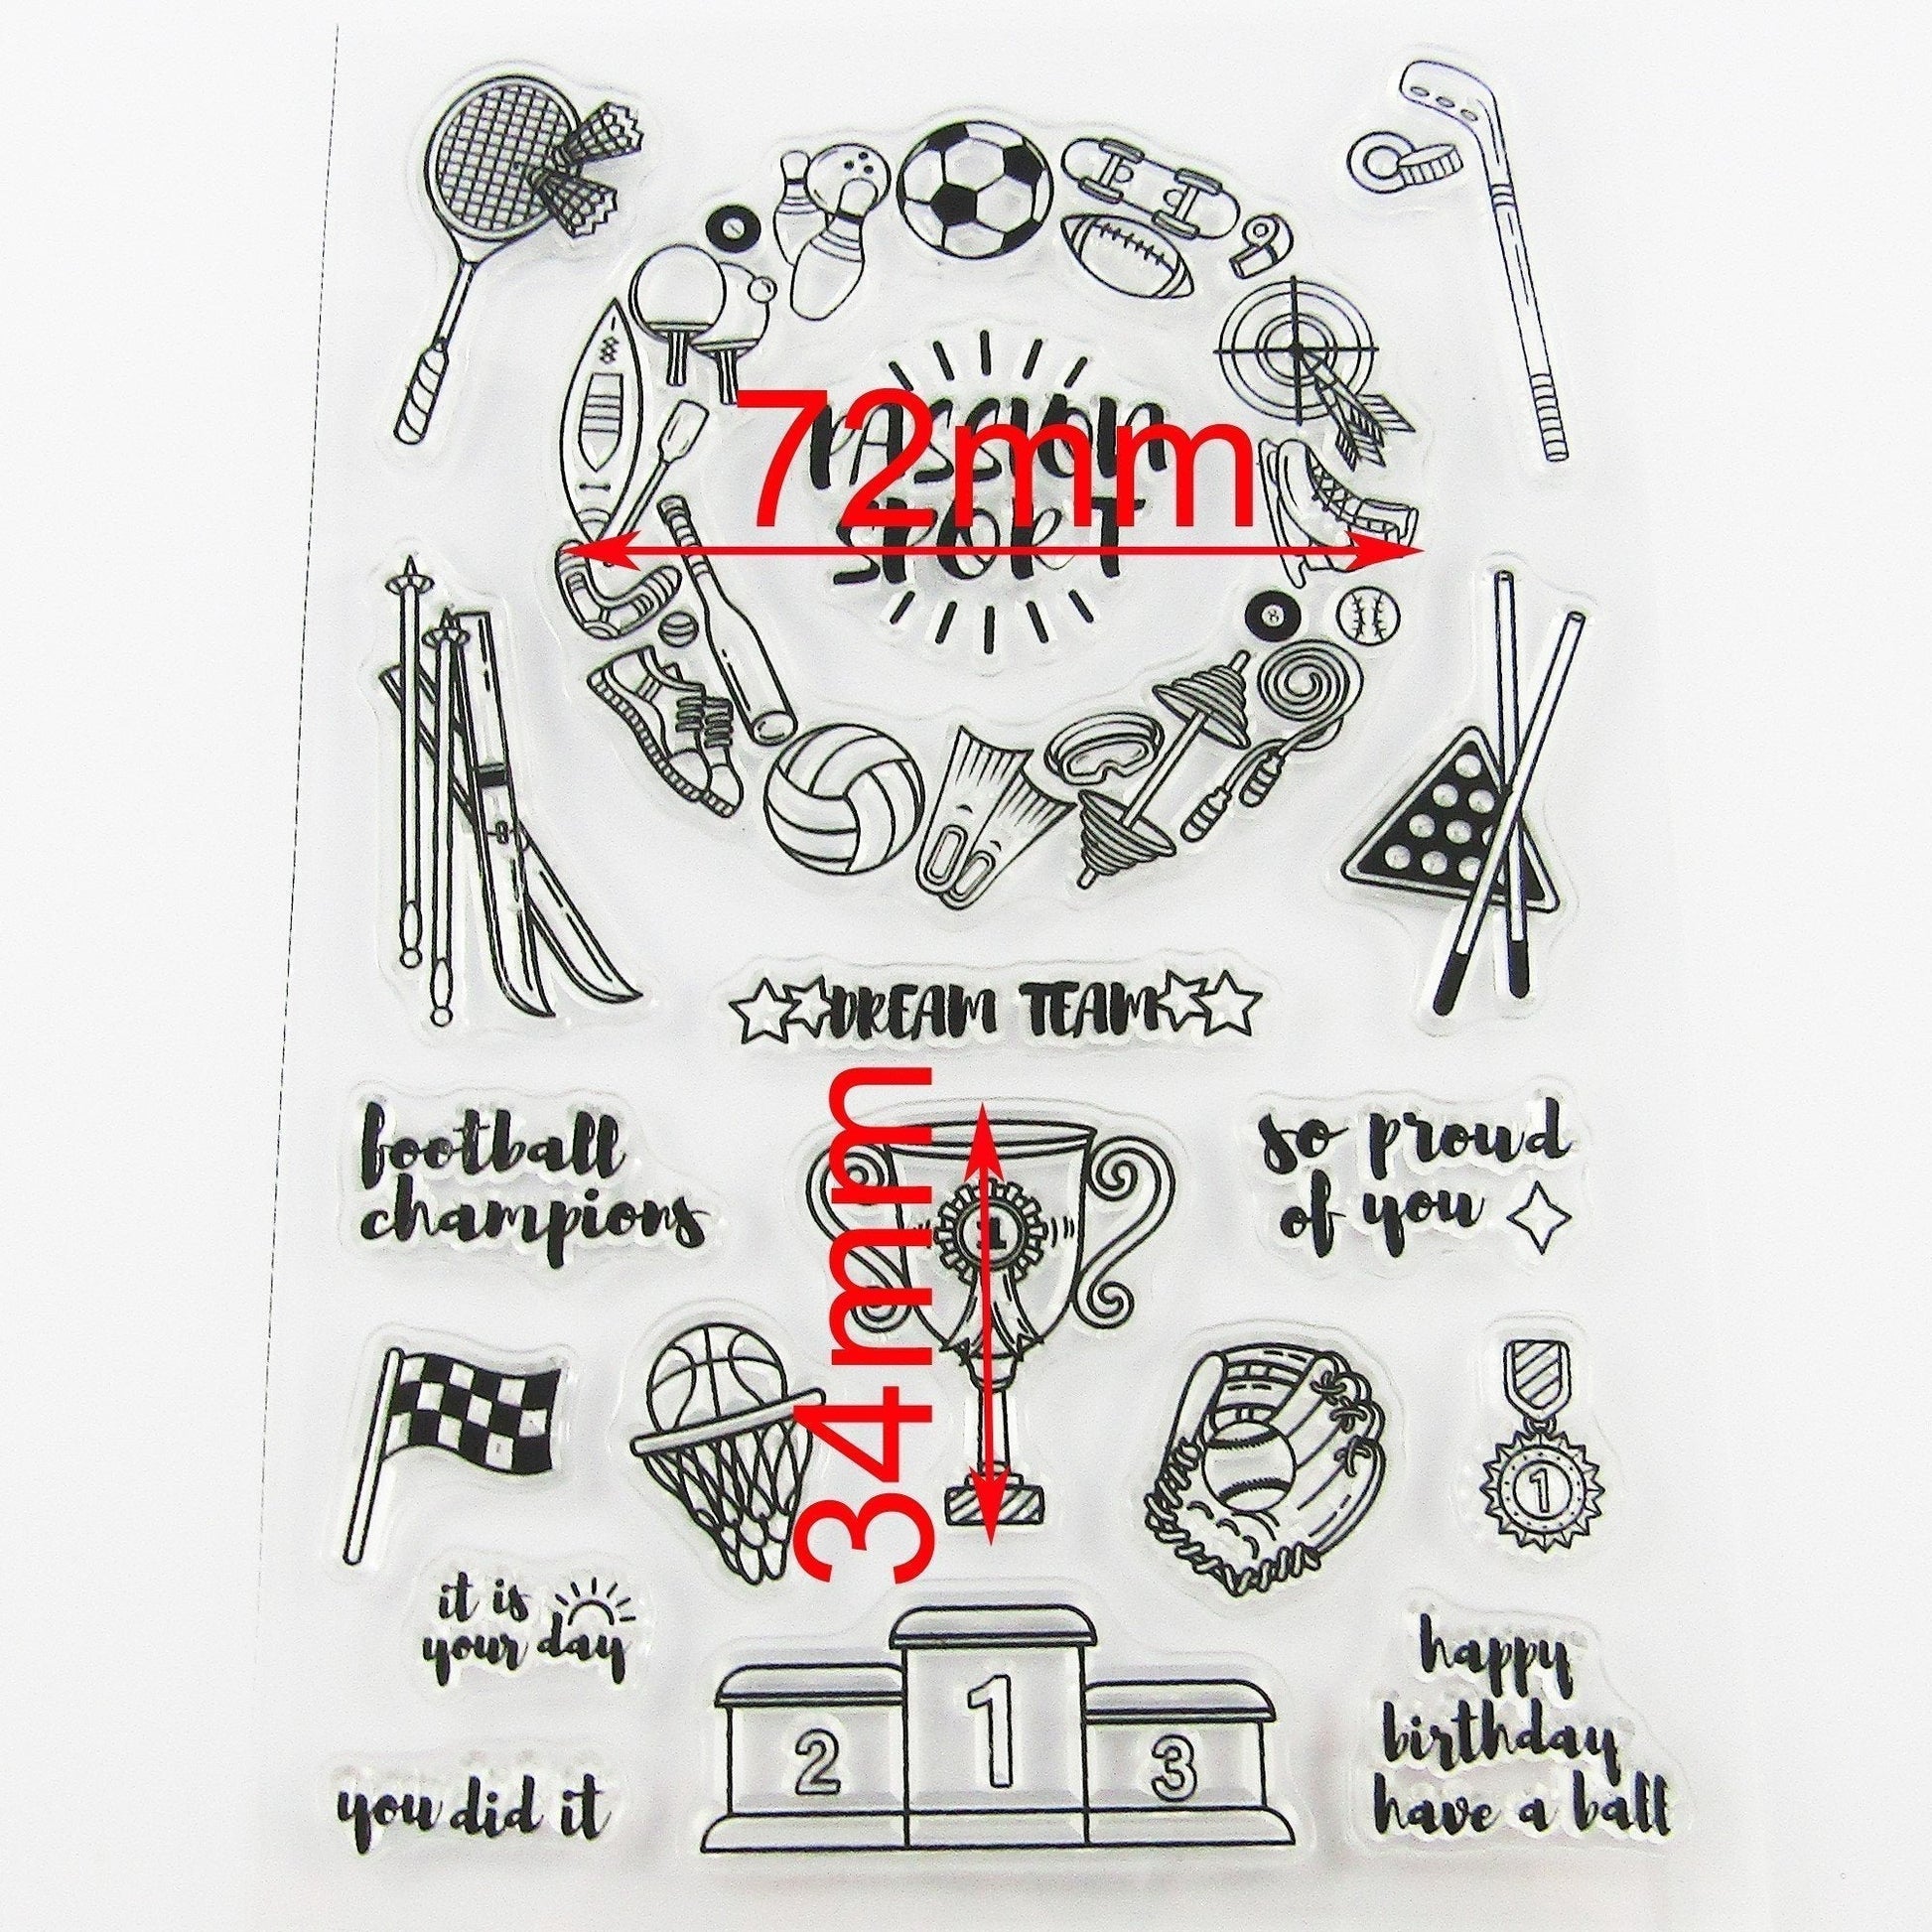 72mm
PASSION
SPORT
DREAM TEAM
34mm
football
champions
so proud
of you
1
1
it is
your day
happy
birthday
have a ball
you did it
2
1
3